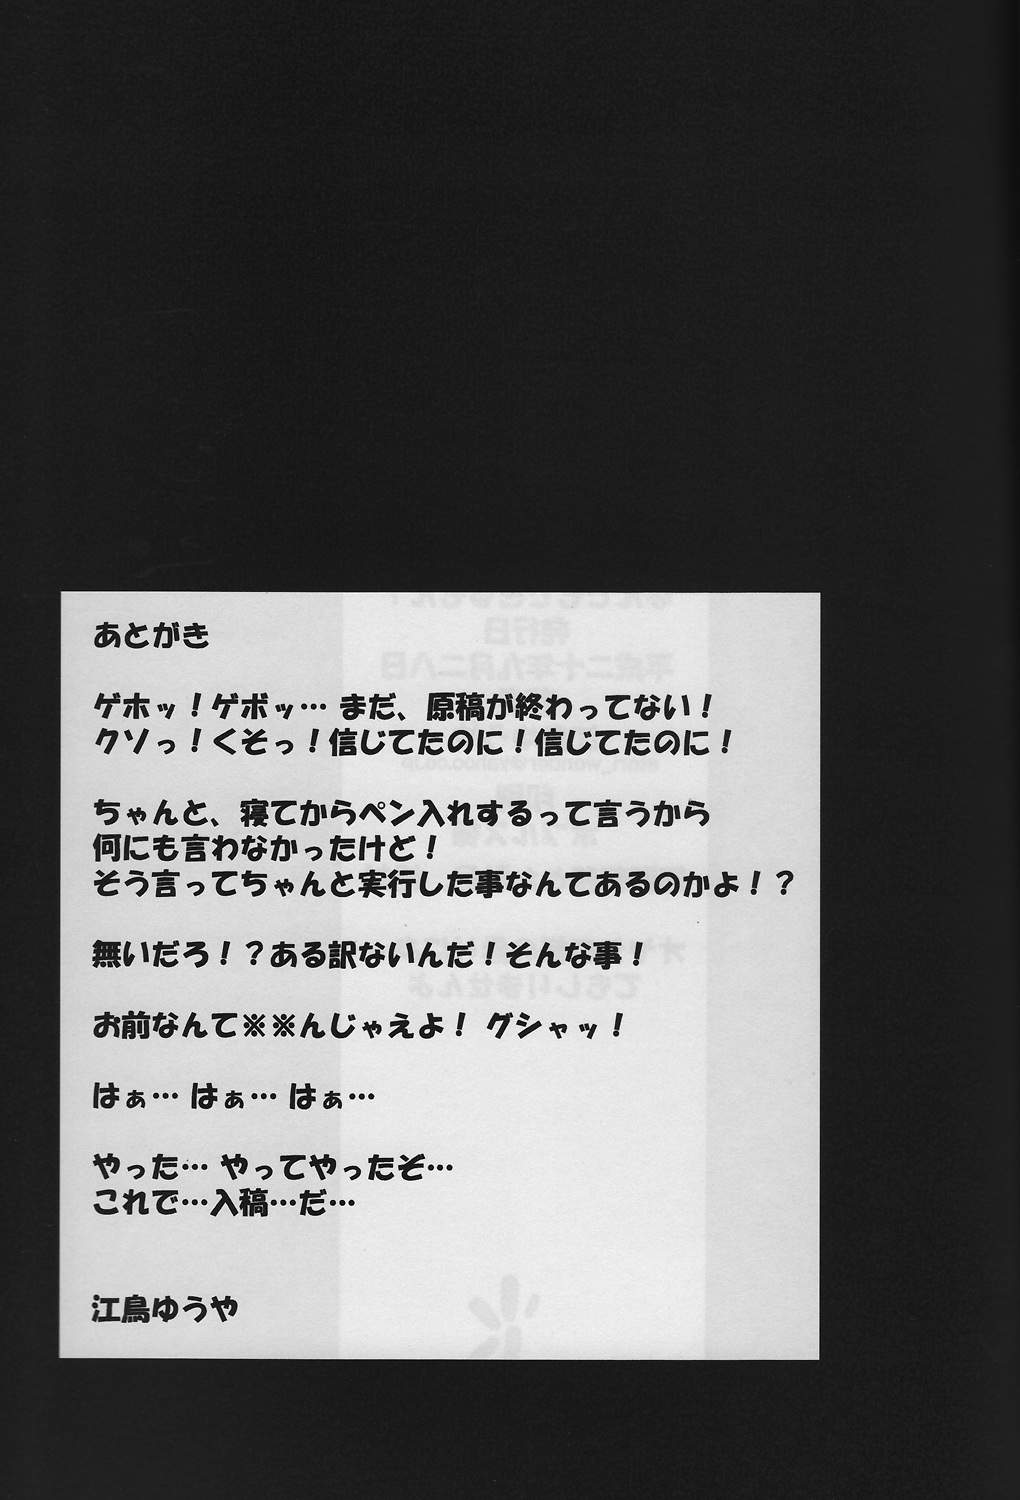 あとがき
ゲホッ！ゲボッ… まだ、原稿が終わってない！
クソっ！くそっ！信じてたのに！信じてたのに！
ちゃんと、寝てからペン入れするって言うから
何にも言わなかったけど！
そう言ってちゃんと実行した事なんてあるのかよ！？
無いだろ！？ある訳ないんだ！そんな事！
お前なんて※※んじゃえよ！ グシャッ！
はぁ… はぁ… はぁ…
やった… やってやったぞ…
これで…入稿…だ…
江鳥ゆうや